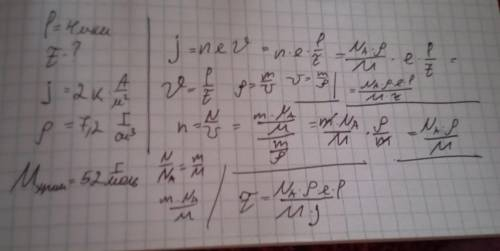 ρ = 4 мкм
τ - ?
j = 2 к А/м²
ρ = 7,2 г/см³
M хром = 52 г/моль
j = n e v = n · e · ρ/τ = N_A · ρ / M · e · ρ/τ =
v = ρ/τ ρ = m/v v = m/ρ = N_A ρ e ρ / M τ
n = N/v = (m · N_A / M) / (m/ρ) = m · N_A / M · ρ/m = N_A · ρ / M
N/N_A = m/M
m · N_A / M
τ = N_A · ρ e ρ / M · j